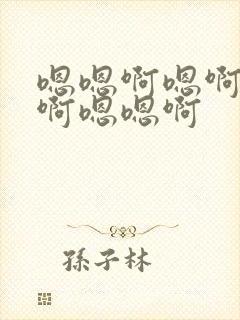 嗯嗯啊嗯啊
啊嗯嗯啊
孫子林